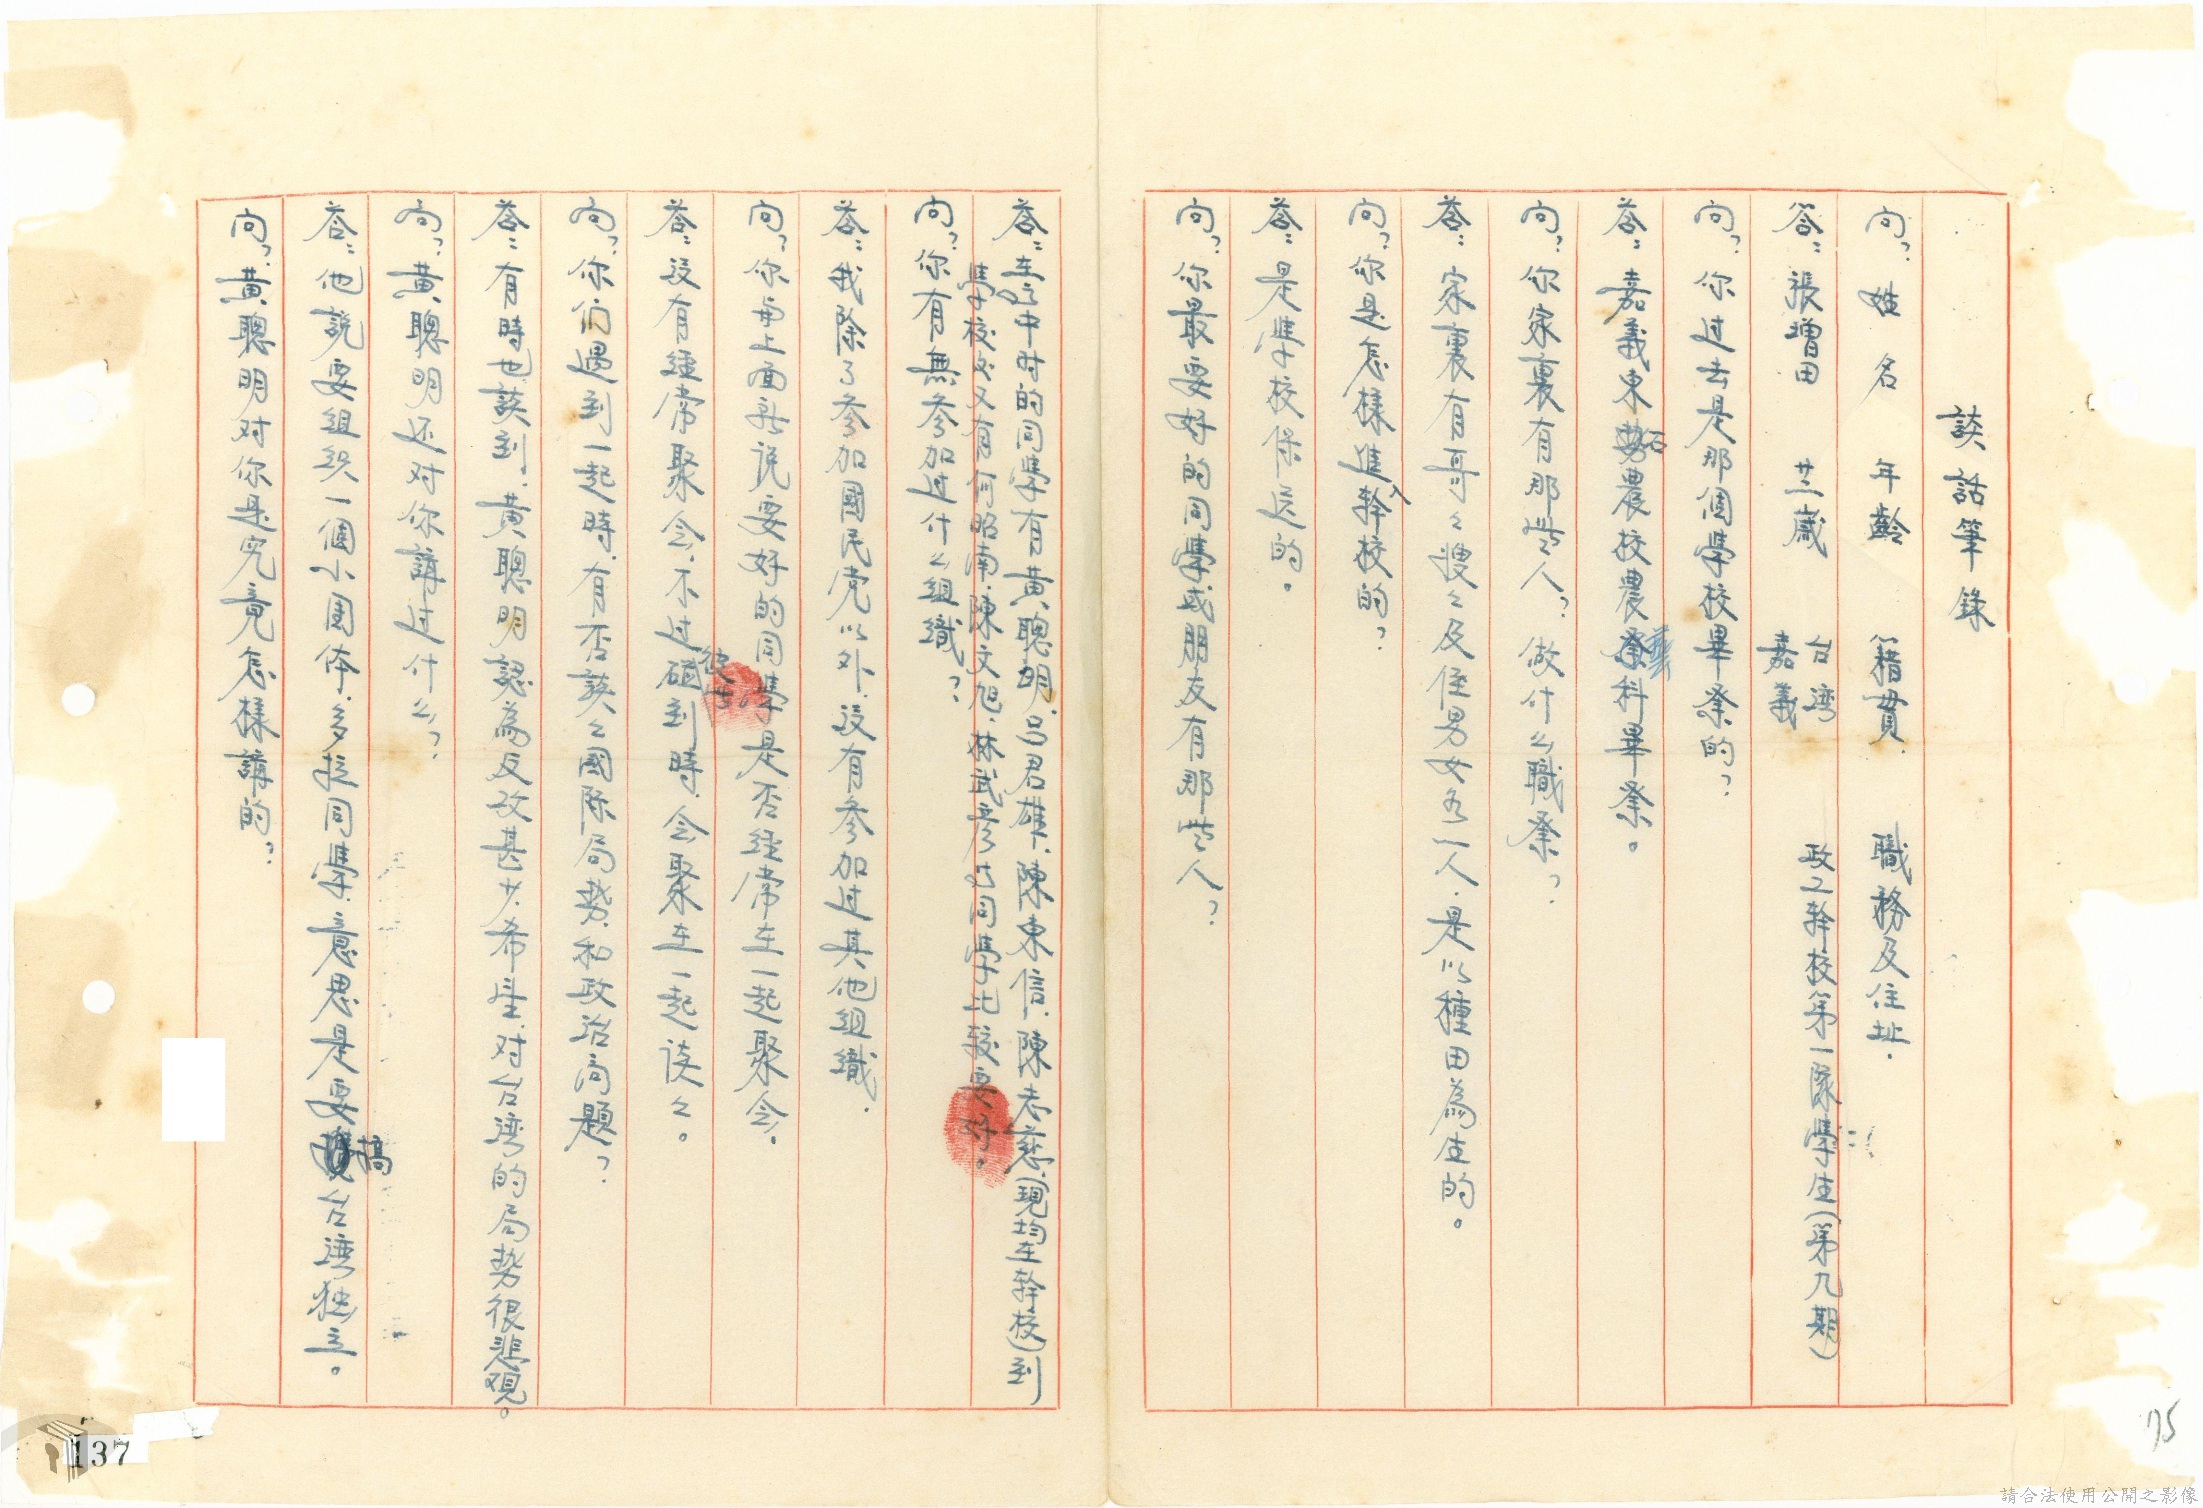 談話筆錄
问? 姓名 年齡 籍貫. 職務及住址.
答: 張增田 廿三歲 台湾嘉義 政工幹校第一隊學生(第九期)
问? 你过去是那個學校畢業的?
答: 嘉義東石農校農業科畢業。
问? 你家裏有那些人? 做什么職業?
答: 家裏有哥々嫂々及侄男女各一人. 是以種田為生的。
问? 你是怎樣進入幹校的?
答: 是學校保送的。
问? 你最要好的同學或朋友有那些人?
答: 在高中时的同學有黃聰明、呂君雄、陳東信、陳志慈(現均在幹校)到
學校後又有何昭南、陳文旭、林武彥等同學比較要好。
问? 你有無參加过什么組織?
答: 我除了參加國民党以外. 沒有參加过其他組織.
问? 你与上面所说要好的同學是否經常在一起聚会.
答: 沒有經常聚会. 不过碰到時. 会聚在一起谈々。
问? 你们遇到一起時. 有否談々國际局勢. 和政治问題?
答: 有時也談到. 黃聰明認為反攻甚少希望. 对台湾的局勢很悲观。
问? 黃聰明还对你講过什么?
答: 他說要組织一個小團体. 多拉同學. 意思是要搞台湾独立。
问? 黃聰明对你是究竟怎樣講的?
137
175
請合法使用公開之影像